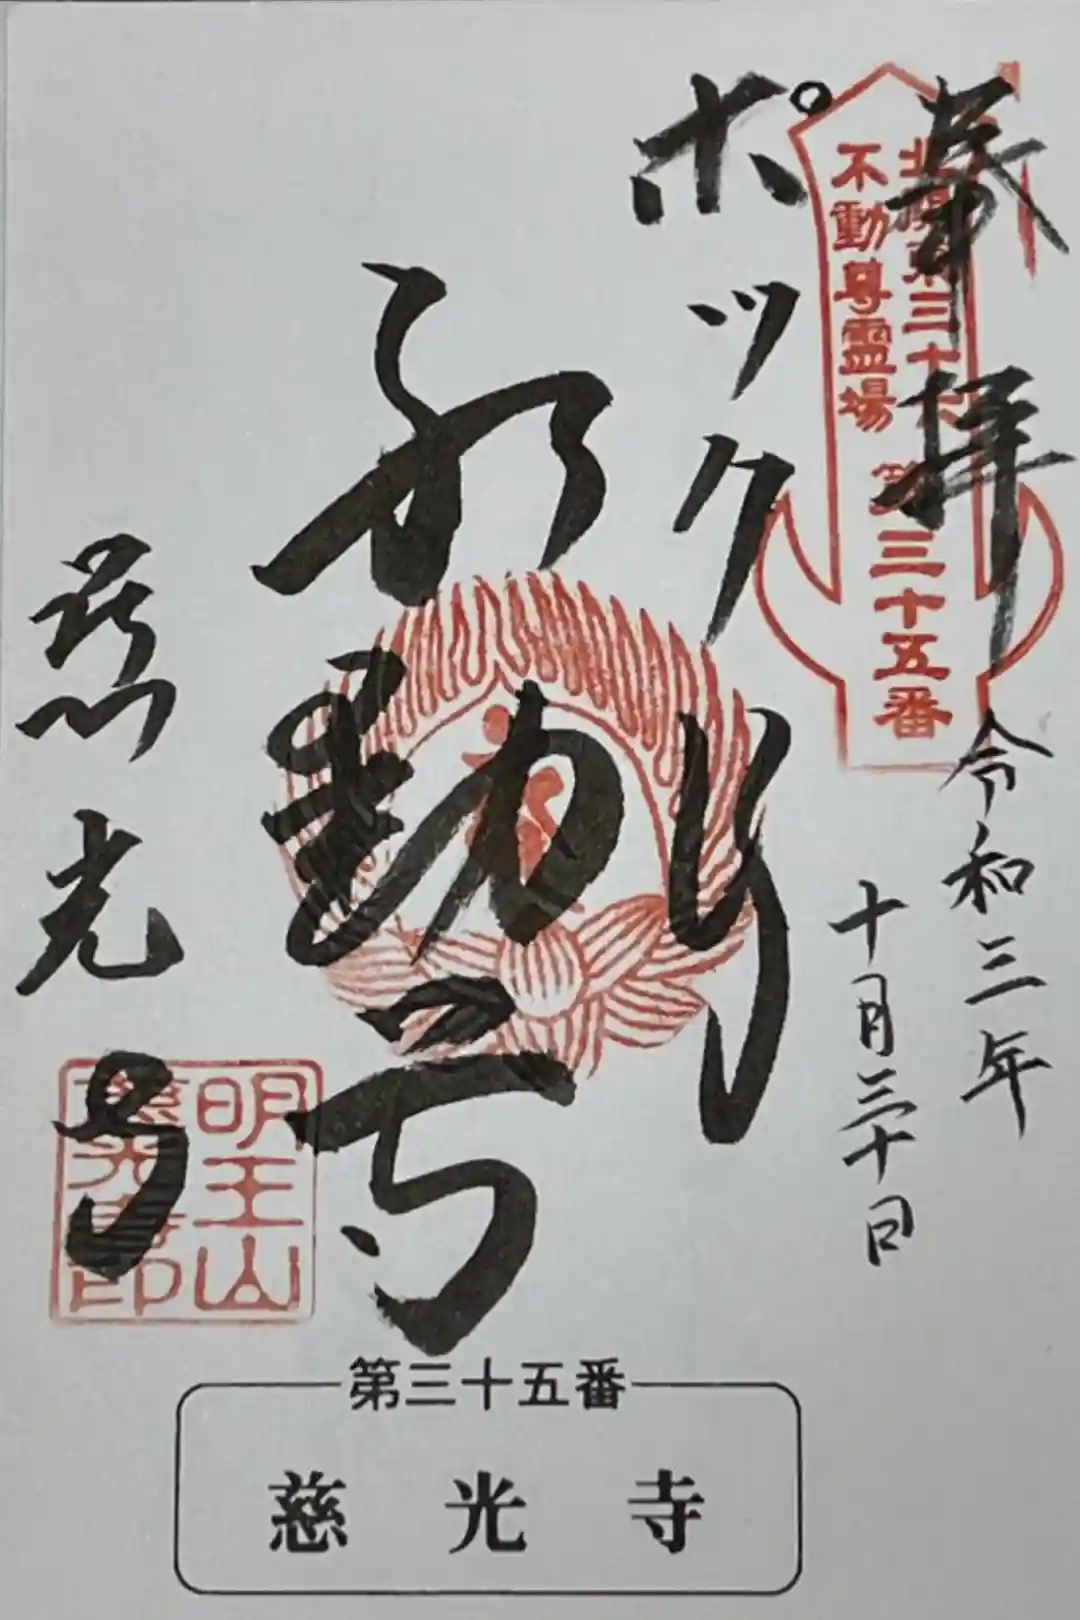 奉拝
北関東三十六
不動尊霊場
第三十五番
令和三年
十月三十日
ポックリ
不動尊
慈光寺
明王山
慈光寺印
第三十五番
慈光寺